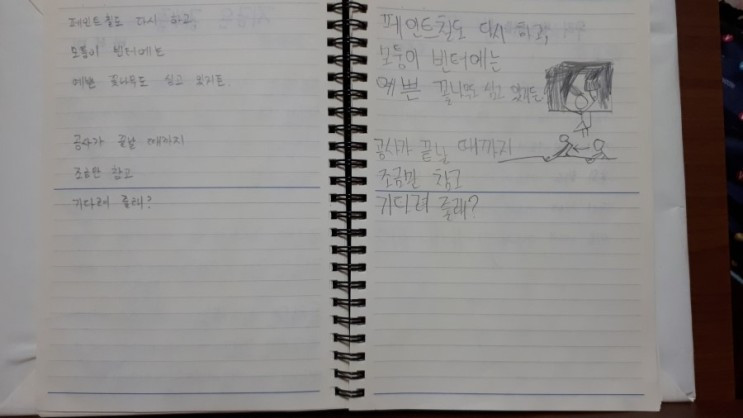 페인트칠도 다시 하고
모퉁이 빈터에는
예쁜 꽃나무도 심고 있거든.
공사가 끝날 때까지
조금만 참고
기다려 줄래?
페인트칠도 다시 하고,
모퉁이 빈터에는
예쁜 꽃나무도 심고 있거든
공사가 끝날 때까지
조금만 참고
기다려 줄래?